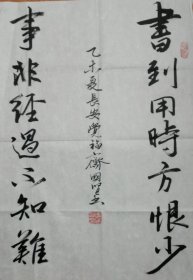 書到用時方恨少
事非經過不知難
乙未夏長安